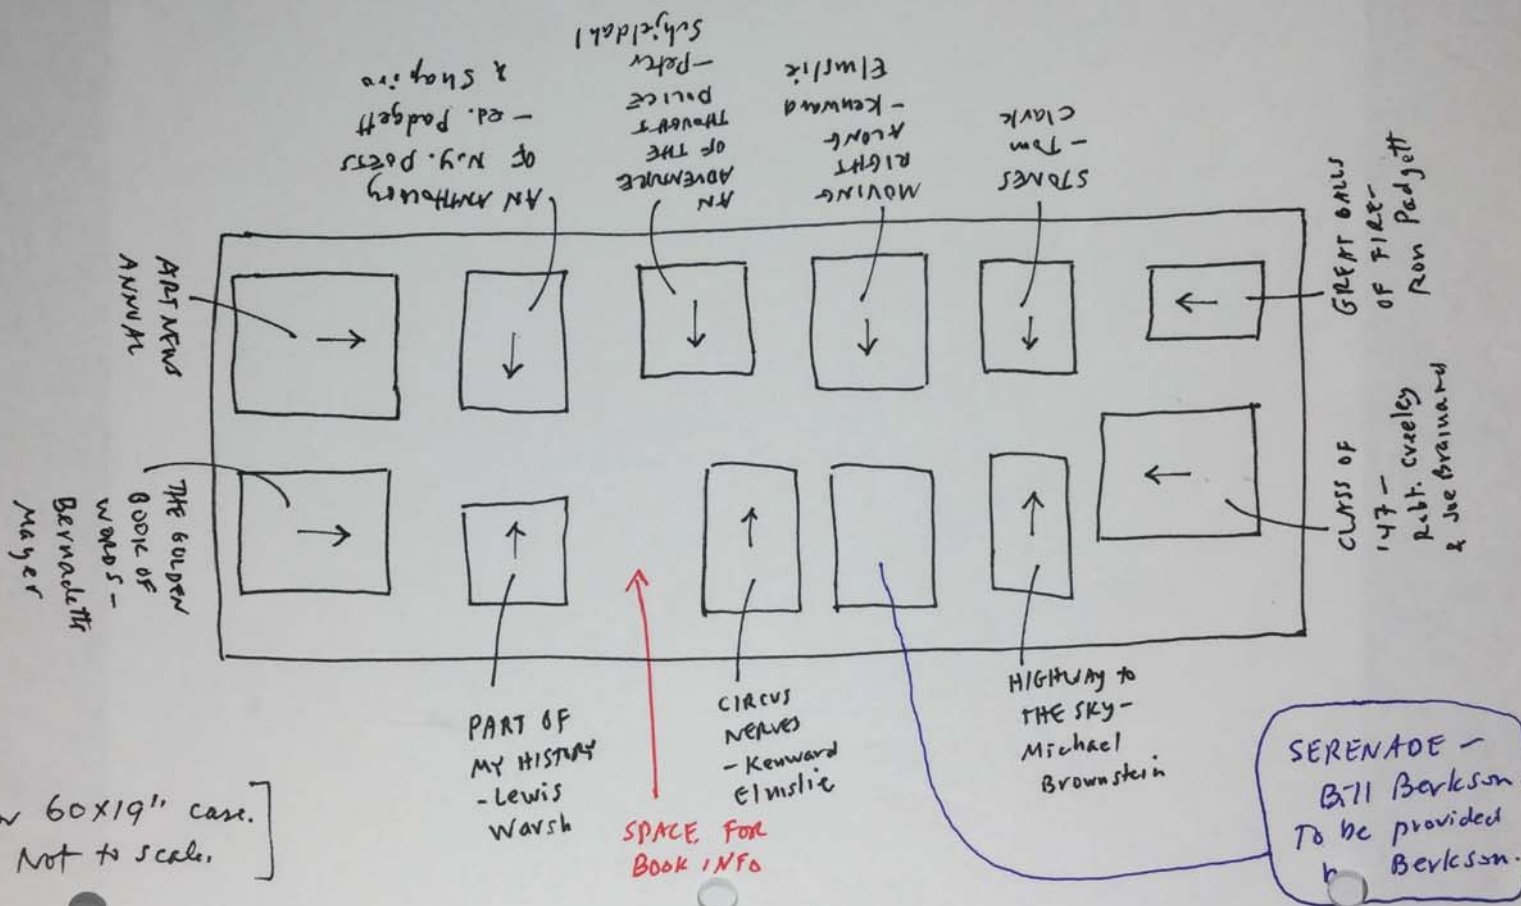 AN ANTHOLOGY
OF N.Y. POETS
- ed. Padgett
& Shapiro
AN
ADVENTURE
OF THE
THOUGHT
POLICE
- Peter
Schjeldahl
MOVING
RIGHT
ALONG
- Kenward
Elmslie
STONES
- Tom
Clark
GREAT BALLS
OF FIRE -
Ron Padgett
ART NEWS
ANNUAL
THE GOLDEN
BOOK OF
WORDS -
Bernadette
Mayer
CLASS OF
'47 -
Robt. Creeley
& Joe Brainard
PART OF
MY HISTORY
- Lewis
Warsh
SPACE FOR
BOOK INFO
CIRCUS
NERVES
- Kenward
Elmslie
HIGHWAY to
THE SKY -
Michael
Brownstein
SERENADE -
Bill Berkson
To be provided
Berkson.
60x19" case.
Not to scale.]